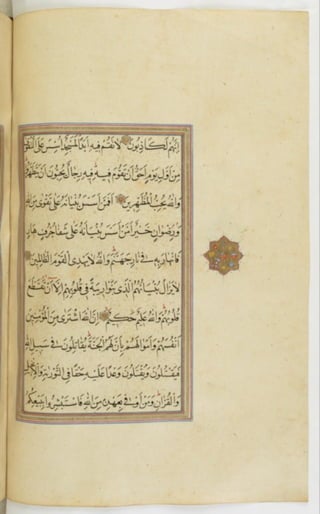 إِنَّهُمْ لَكَاذِبُونَ لَا تَقُمْ فِيهِ أَبَدًا لَمَسْجِدٌ أُسِّسَ عَلَى التَّقْوَى
مِنْ أَوَّلِ يَوْمٍ أَحَقُّ أَنْ تَقُومَ فِيهِ فِيهِ رِجَالٌ يُحِبُّونَ أَنْ يَتَطَهَّرُوا
وَاللَّهُ يُحِبُّ الْمُطَّهِّرِينَ أَفَمَنْ أَسَّسَ بُنْيَانَهُ عَلَى تَقْوَى مِنَ اللَّهِ
وَرِضْوَانٍ خَيْرٌ أَمْ مَنْ أَسَّسَ بُنْيَانَهُ عَلَى شَفَا جُرُفٍ هَارٍ
فَانْهَارَ بِهِ فِي نَارِ جَهَنَّمَ وَاللَّهُ لَا يَهْدِي الْقَوْمَ الظَّالِمِينَ
لَا يَزَالُ بُنْيَانُهُمُ الَّذِي بَنَوْا رِيبَةً فِي قُلُوبِهِمْ إِلَّا أَنْ تَقَطَّعَ
قُلُوبُهُمْ وَاللَّهُ عَلِيمٌ حَكِيمٌ إِنَّ اللَّهَ اشْتَرَى مِنَ الْمُؤْمِنِينَ
أَنْفُسَهُمْ وَأَمْوَالَهُمْ بِأَنَّ لَهُمُ الْجَنَّةَ يُقَاتِلُونَ فِي سَبِيلِ اللَّهِ
فَيَقْتُلُونَ وَيُقْتَلُونَ وَعْدًا عَلَيْهِ حَقًّا فِي التَّوْرَيةِ وَالْإِنْجِيلِ
وَالْقُرْآنِ وَمَنْ أَوْفَى بِعَهْدِهِ مِنَ اللَّهِ فَاسْتَبْشِرُوا بِبَيْعِكُمُ